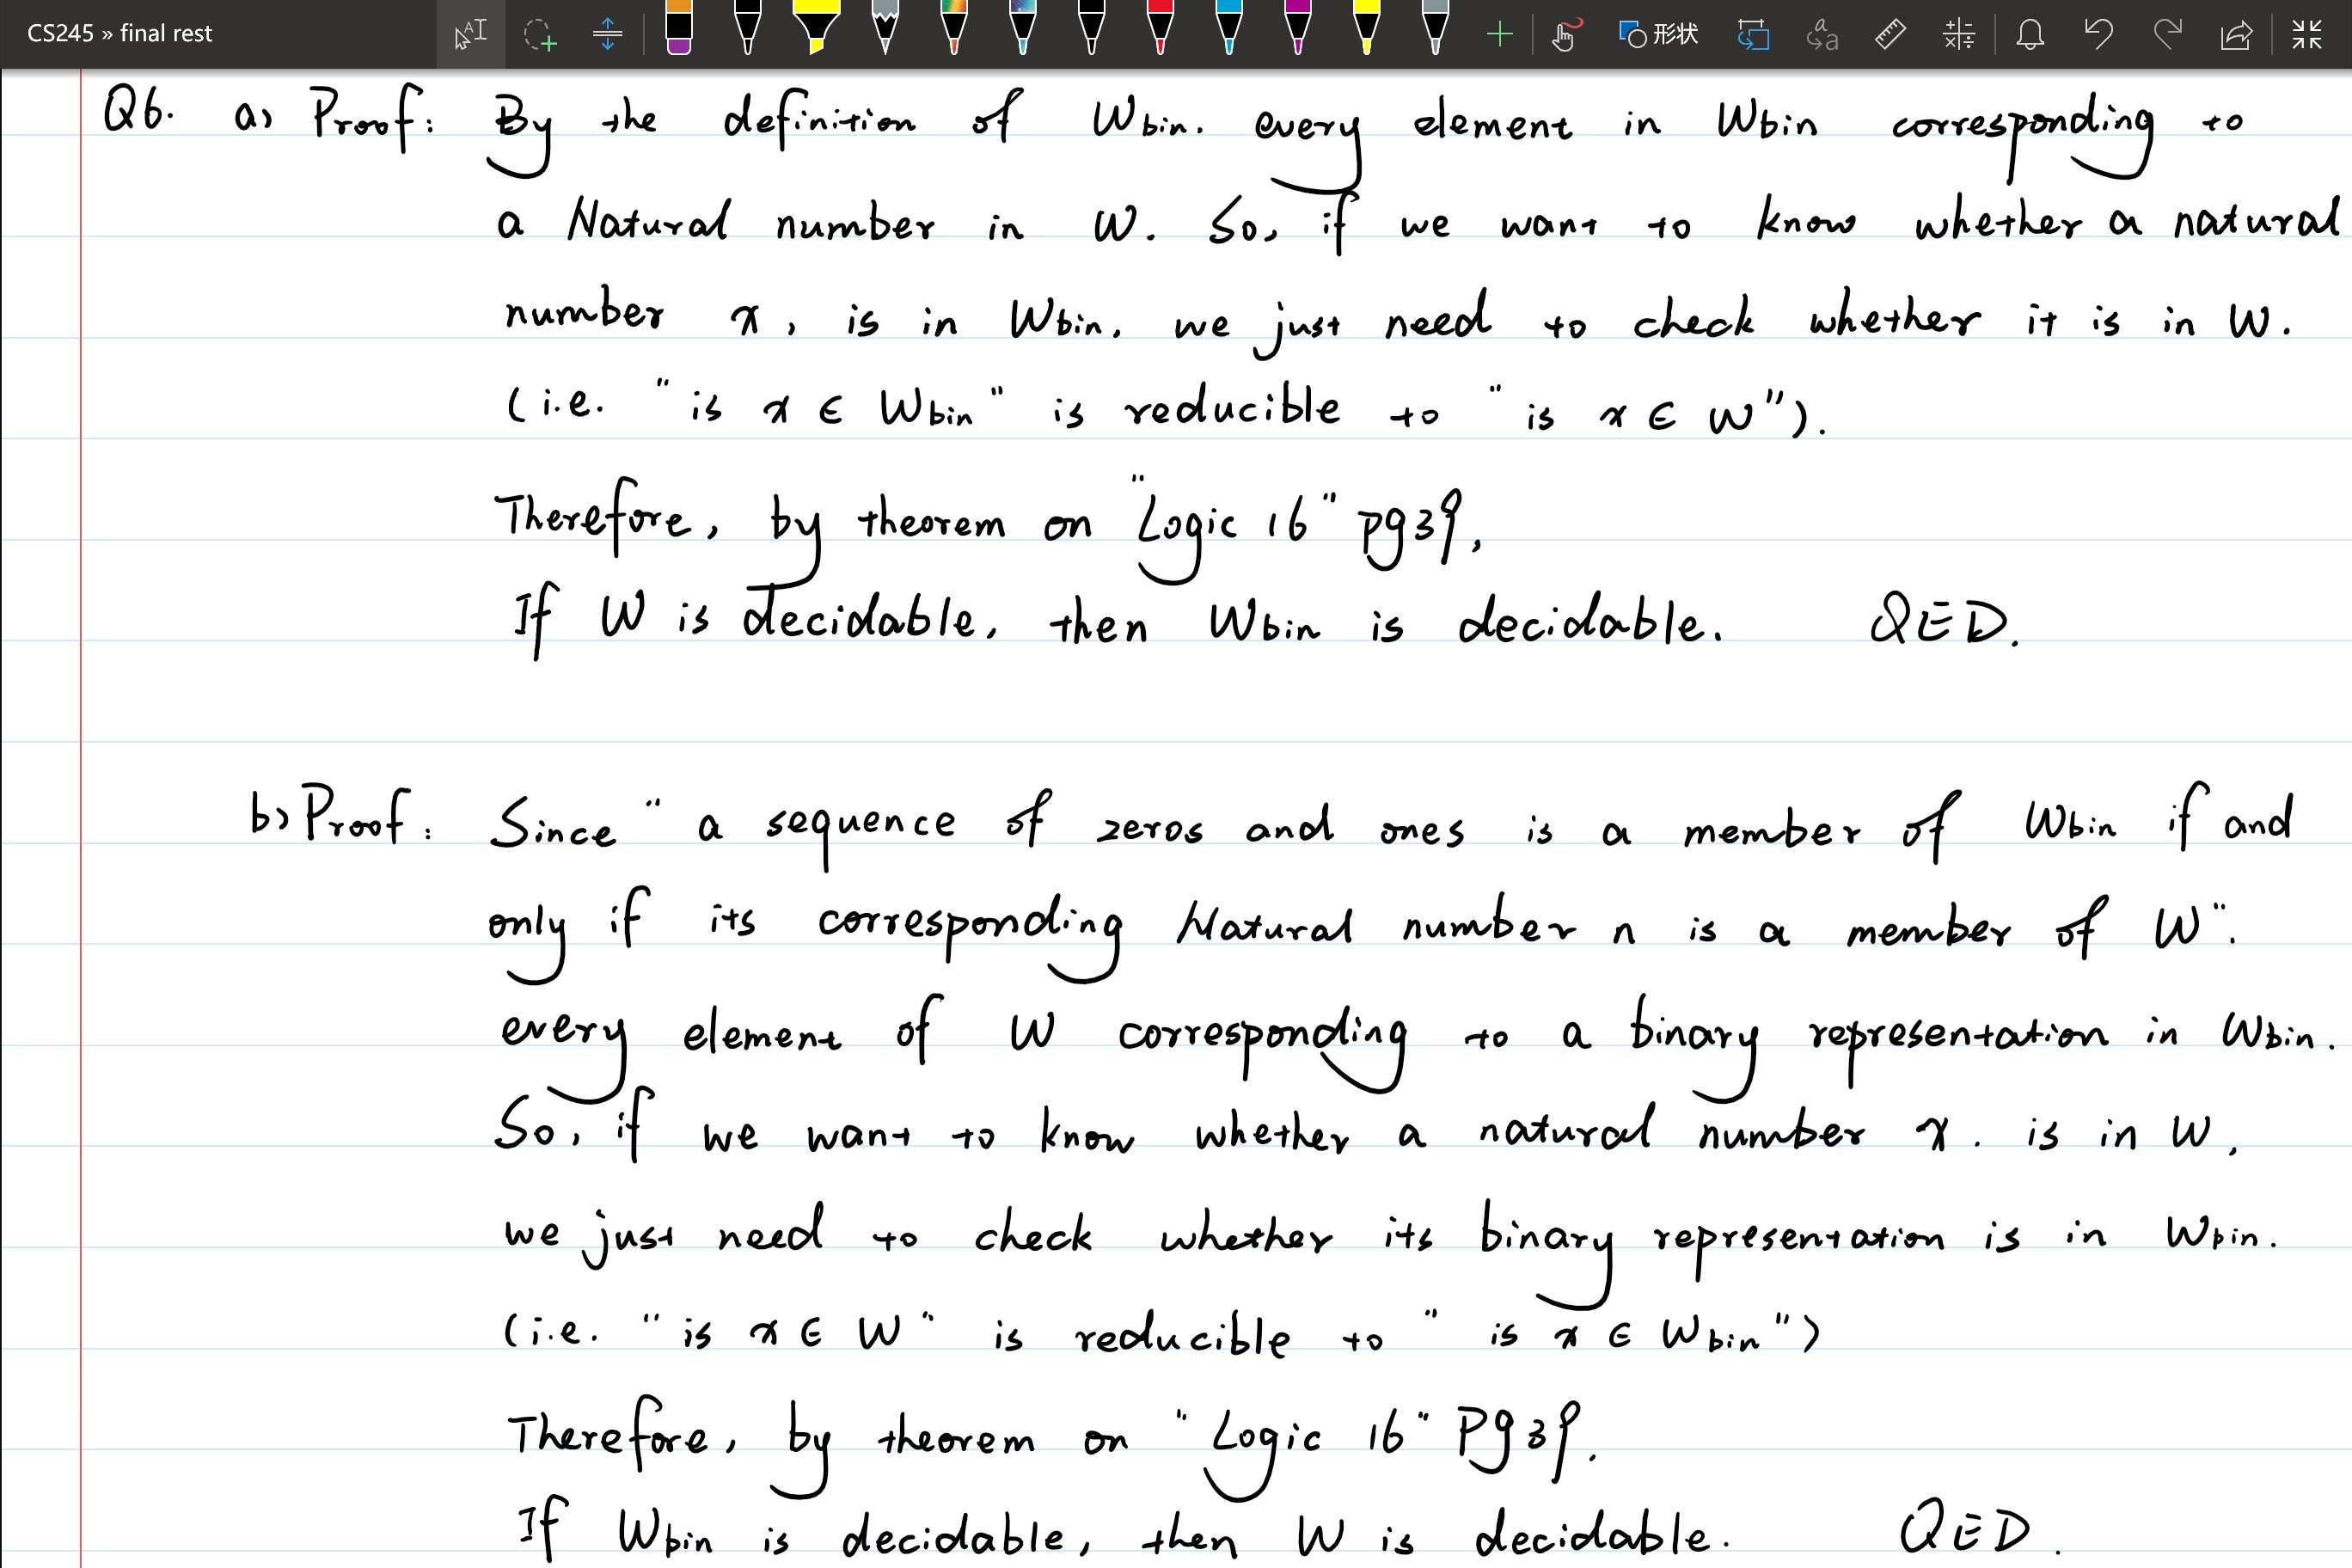 CS245 » final rest
形状
Q6. a) Proof: By the definition of Wbin. every element in Wbin corresponding to
a Natural number in W. So, if we want to know whether a natural
number x, is in Wbin, we just need to check whether it is in W.
(i.e. "is x ∈ Wbin" is reducible to "is x ∈ W").
Therefore, by theorem on "Logic 16" pg39,
If W is decidable, then Wbin is decidable. QED.
b) Proof: Since "a sequence of zeros and ones is a member of Wbin if and
only if its corresponding Natural number n is a member of W".
every element of W corresponding to a binary representation in Wbin.
So, if we want to know whether a natural number x. is in W,
we just need to check whether its binary representation is in Wbin.
(i.e. "is x ∈ W" is reducible to "is x ∈ Wbin")
Therefore, by theorem on "Logic 16" Pg39.
If Wbin is decidable, then W is decidable. QED.